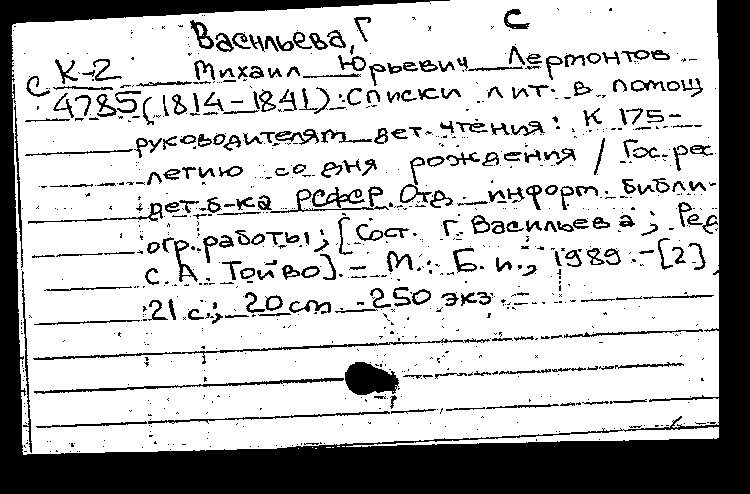 Васильева, Г С
с К-2 Михаил Юрьевич Лермонтов
4785 (1814-1841): Списки лит. в помощ
руководителям дет. чтения: К 175-
летию со дня рождения / Гос. рес
дет. б-ка РСФСР. Отд. информ. библи-
огр. работы; [Сост. Г. Васильева; Ред
С. А. Тойво]. - М.: Б. и., 1989. - [2],
21 с.; 20 см. - 250 экз. -